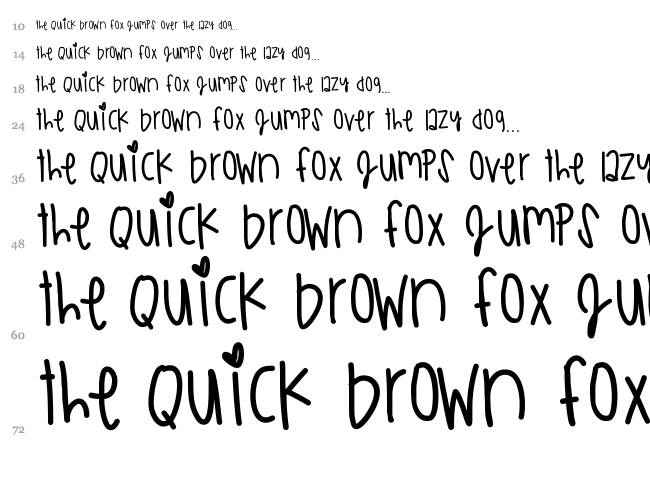 10 the quick brown fox jumps over the lazy dog...
14 the quick brown fox jumps over the lazy dog...
18 the quick brown fox jumps over the lazy dog...
24 the quick brown fox jumps over the lazy dog...
36 the quick brown fox jumps over the lazy
48 the quick brown fox jumps ov
60 the quick brown fox ju
72 the quick brown fox